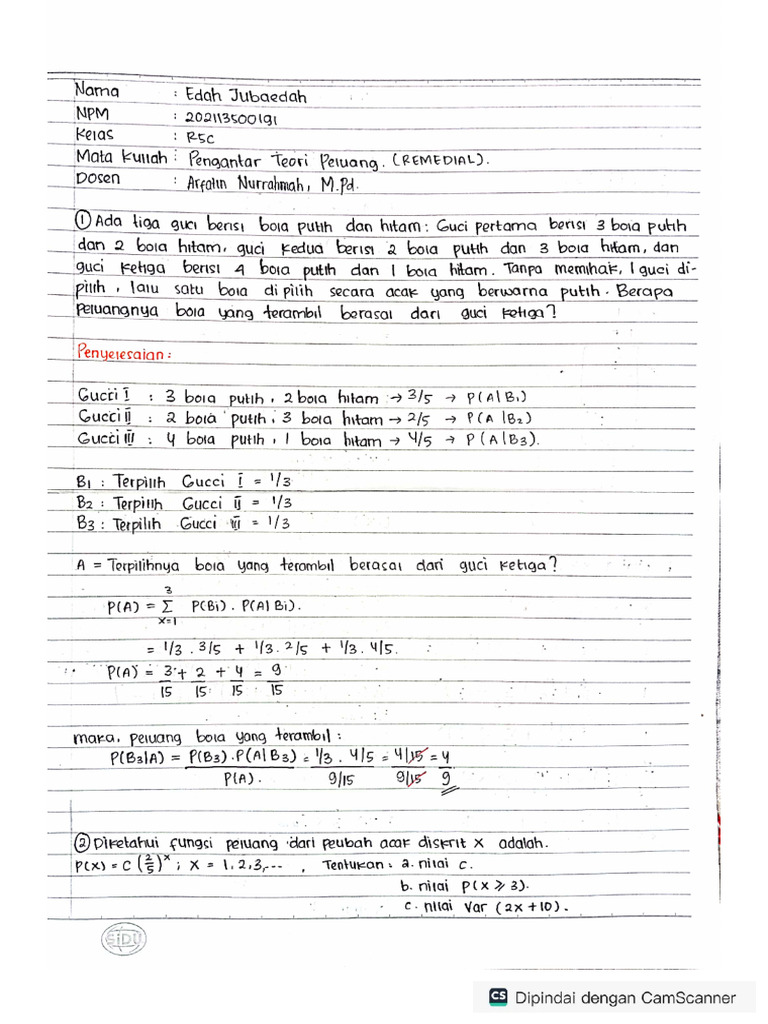 Nama : Edah Jubaedah
NPM : 202113500191
Kelas : R5C
Mata Kuliah : Pengantar Teori Peluang. (REMEDIAL).
Dosen : Arfatin Nurrahmah, M.Pd.
① Ada tiga guci berisi bola putih dan hitam : Guci pertama berisi 3 bola putih
dan 2 bola hitam, guci kedua berisi 2 bola putih dan 3 bola hitam, dan
guci ketiga berisi 4 bola putih dan 1 bola hitam. Tanpa memihak, 1 guci di-
pilih, lalu satu bola dipilih secara acak yang berwarna putih. Berapa
Peluangnya bola yang terambil berasal dari guci ketiga?
Penyelesaian :
Gucci I : 3 bola putih, 2 bola hitam → 3/5 → P(A|B₁)
Gucci II : 2 bola putih, 3 bola hitam → 2/5 → P(A|B₂)
Gucci III : 4 bola putih, 1 bola hitam → 4/5 → P(A|B₃).
B₁ : Terpilih Gucci I = 1/3
B₂ : Terpilih Gucci II = 1/3
B₃ : Terpilih Gucci III = 1/3
A = Terpilihnya bola yang terambil berasal dari guci ketiga?
3
P(A) = Σ P(Bi) . P(A|Bi).
x=1
= 1/3 . 3/5 + 1/3 . 2/5 + 1/3 . 4/5.
P(A) = 3 + 2 + 4 = 9
15 15 15 15
maka, peluang bola yang terambil :
P(B₃|A) = P(B₃).P(A|B₃) = 1/3 . 4/5 = 4/15 = 4
P(A). 9/15 9/15 9
② Diketahui fungsi peluang dari peubah acak diskrit X adalah.
P(x) = C (2/5)ˣ ; X = 1,2,3,... , Tentukan : a. nilai c.
b. nilai P(x ⩾ 3).
c. nilai Var (2x + 10).
SiDU
CS Dipindai dengan CamScanner